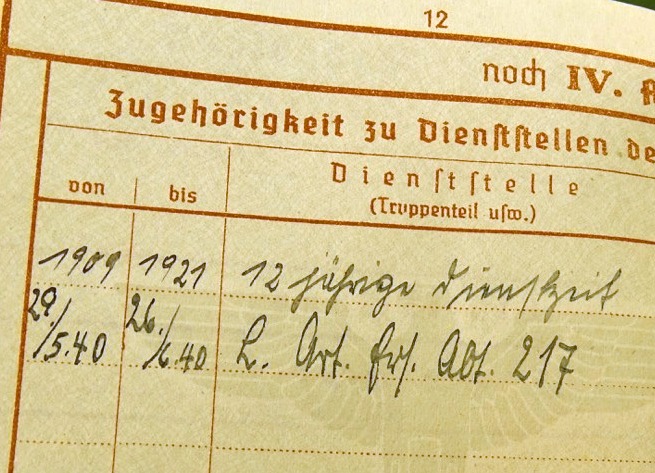 12
noch IV.
Zugehörigkeit zu Dienststellen de
von bis Dienststelle
(Truppenteil usw.)
1909 1921 12 jährige Dienstzeit
29./5.40 26./6.40 L. Art. Ers. Abt. 217